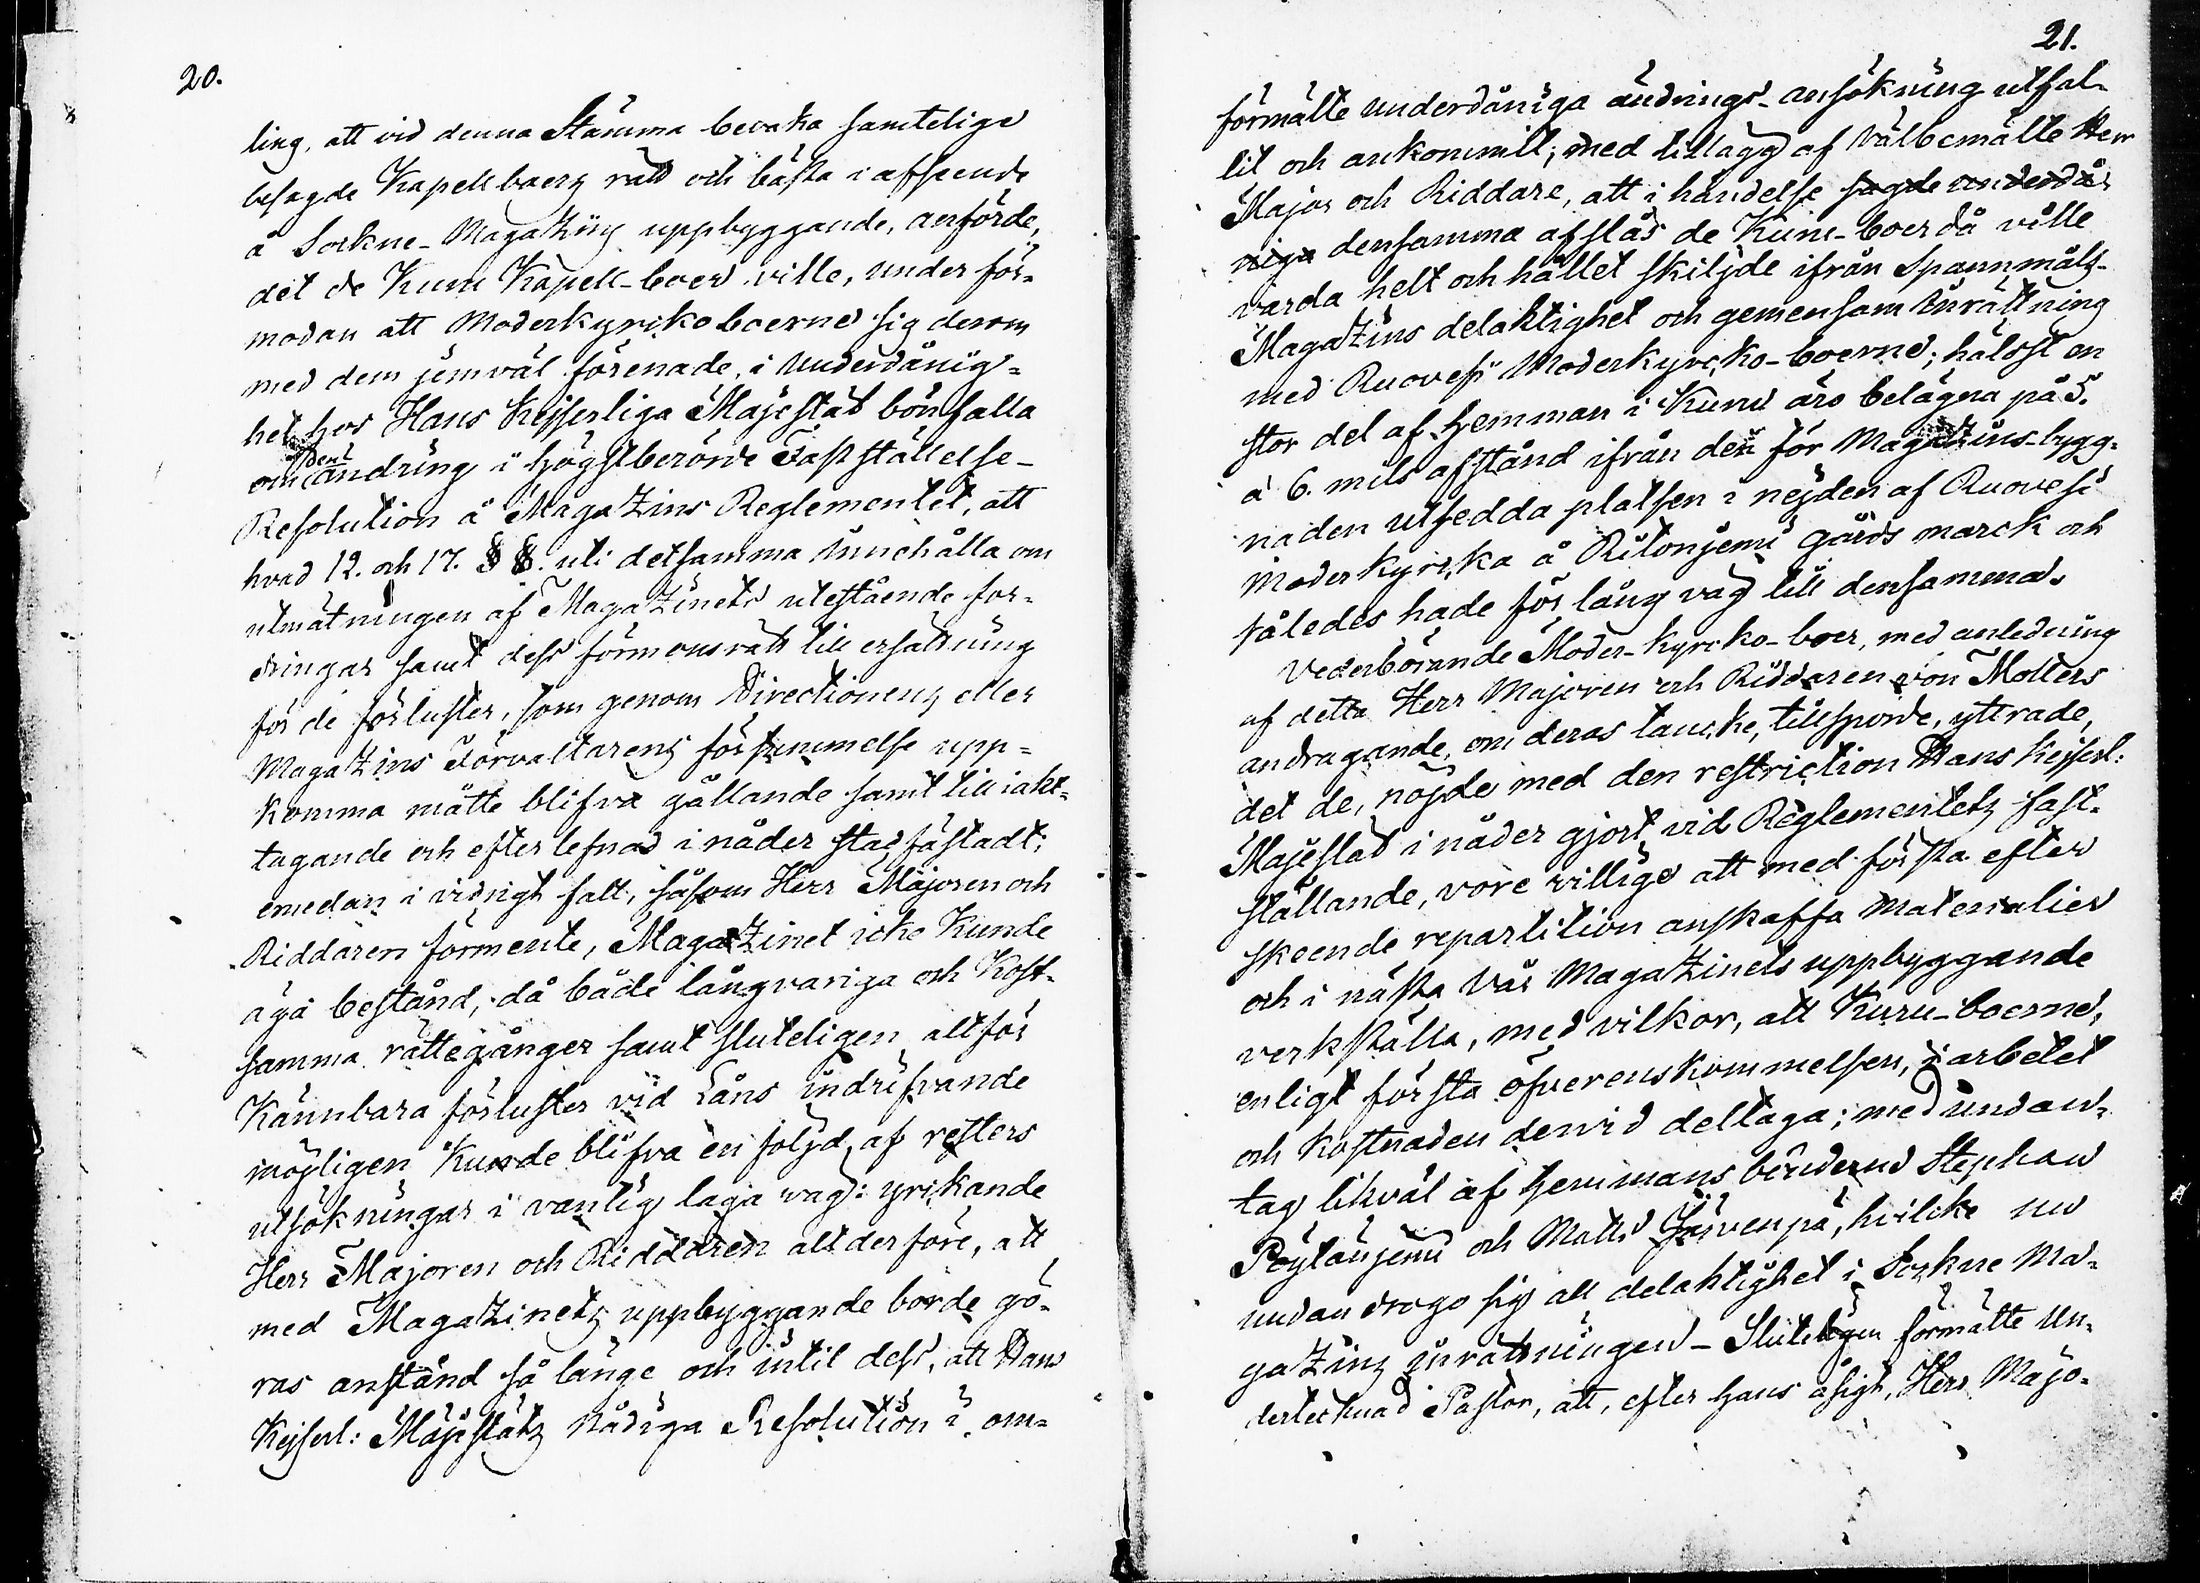 20.
ling, att vid denna Stämma bevaka samtelige
besagde Kapellboers rätt och bästa i afseende
å Sockne-Magatzins uppbyggande, anförde,
det de Kuru Kapell-boer ville, under för-
modan att Moderkyrckoboerne sig derom
med dem jemväl förenade, i underdånig-
het hos Hans Kejserliga Majestät bönfalla
om den ändring i högstberörde Fastställelse-
Resolution å Magatzins Reglementet, att
hvad 12. och 17. §§. uti detsamma innehålla om
utmätningen af Magatzinets utestående for-
dringar samt dess förmonsrätt till ersättning
för de förluster, som genom Directionens eller
Magatzins Förvaltarens försummelse upp-
komma måtte blifva gällande samt till iakt-
tagande och efterlefnad i nåder stadfästadt;
emedan i vidrigt fall, såsom Herr Majoren och
Riddaren förmente, Magatzinet icke kunde
äga bestånd, då både långvariga och kost-
samma rättegånger samt sluteligen altför
kännbara förluster vid Låns indrifvande
möjligen kunde blifva en följd af resters
utsökningar i vanlig laga väg: yrkande
Herr Majoren och Riddaren alt derföre, att
med Magatzinets uppbyggande borde gö-
ras anstånd så länge och intil dess, att Hans
Kejserl: Majestäts Nådiga Resolution i om-
21.
förmälte underdåniga ändrings-ansökning utfal-
lit och ankommit; med tillägg af Välbemälte Herr
Major och Riddare, att i händelse sagde underdå-
niga densamma afslås de Kuru-boer då ville
varda helt och hållet skiljde ifrån Spannmåls-
Magatzins delaktighet och gemensam inrättning
med Ruovesi Moderkyrcko-boerne; hälst en
stor del af Hemman i Kuru äro belägna på 5.
à 6. mils afstånd ifrån den för Magatzins-bygg-
naden utsedda platsen i nejden af Ruovesi
Moderkyrcka å Ritoniemi gårds marck och
således hade för lång väg till densamma.
Vederbörande Moder-kyrcko-boer, med anledning
af detta Herr Majoren och Riddaren von Mollers
andragande, om deras tancke, tillsporde, yttrade,
det de, nöjde med den restriction Hans Kejserl:
Majestät i nåder gjort vid Reglementets fast-
ställande, vore willige att med första efter
skeende repartition anskaffa Materialier
och i nästa Vår Magatzinets uppbyggande
verkställa, med vilkor, att Kuru-boerne,
enligt första öfverenskommelsen, i arbetet
och kostnaden dervid deltaga; med undan-
tag likväl af Hemmans bönderne Stephan
Pöylänjemi och Matts Järvenpä, hvilcke nu
undandrogo sig all delaktighet i Sockne Ma-
gatzins inrättningen - Sluteligen förmälte Un-
dertecknad Pastor, att, efter Hans åsigt, Herr Majo-